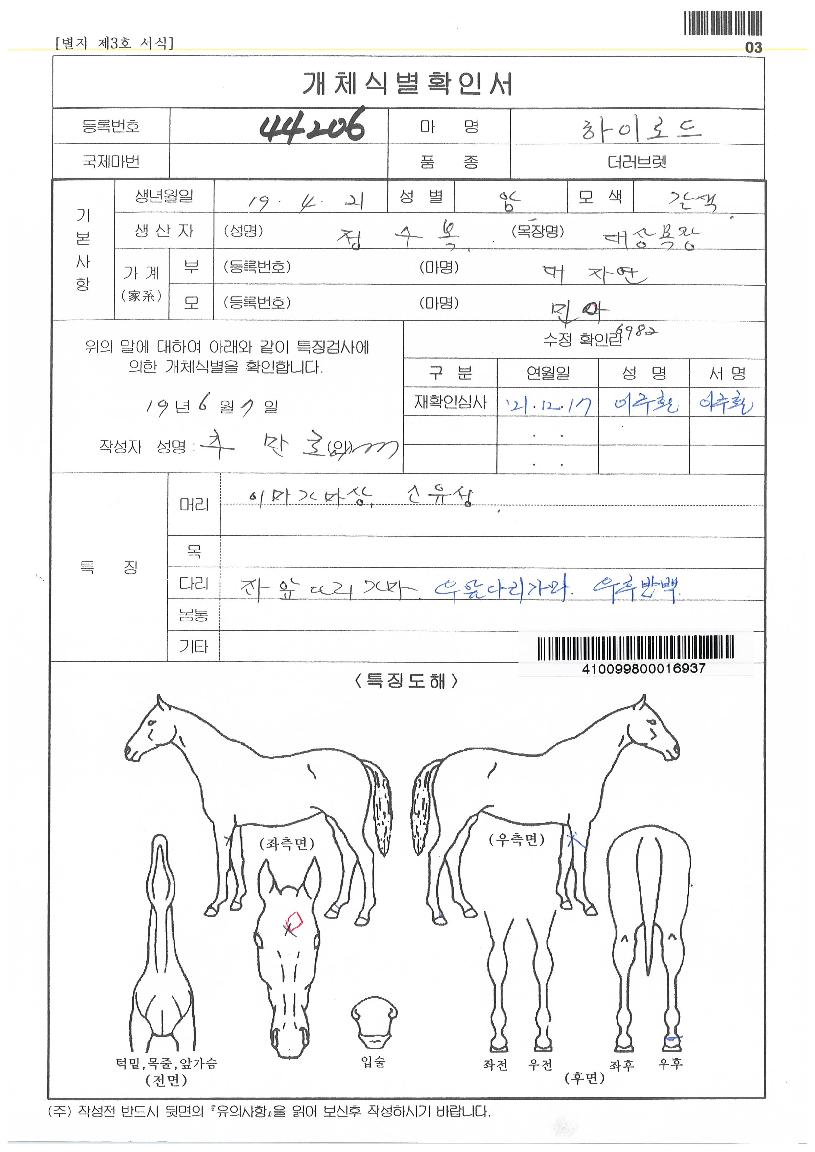 03
[별지 제3호 서식]
개체식별확인서
등록번호 44206 마 명 하이로드
국제마번 품 종 더러브렛
기본사항
생년월일 19. 4. 21 성 별 암 모 색 갈색
생 산 자 (성명) 정 수 복 (목장명) 대상목장
가 계 (家系) 부 (등록번호) (마명) 머 자연
모 (등록번호) (마명) 민아
6982
위의 말에 대하여 아래와 같이 특징검사에
의한 개체식별을 확인합니다.
19년 6월 7일
작성자 성명: 추 만 호 (인)
수정 확인란
구 분 연월일 성 명 서 명
재확인심사 '21.12.17 이주환 이주환
. .
. .
특 징
머리 이마가마상, 소유성
목
다리 좌앞다리가마. 우앞다리가마. 우후반백.
몸통
기타
410099800016937
<특징도해>
(좌측면)
(우측면)
턱밑,목줄,앞가슴
(전면)
입술
좌전 우전
좌후 우후
(후면)
(주) 작성전 반드시 뒷면의 『유의사항』을 읽어 보신후 작성하시기 바랍니다.